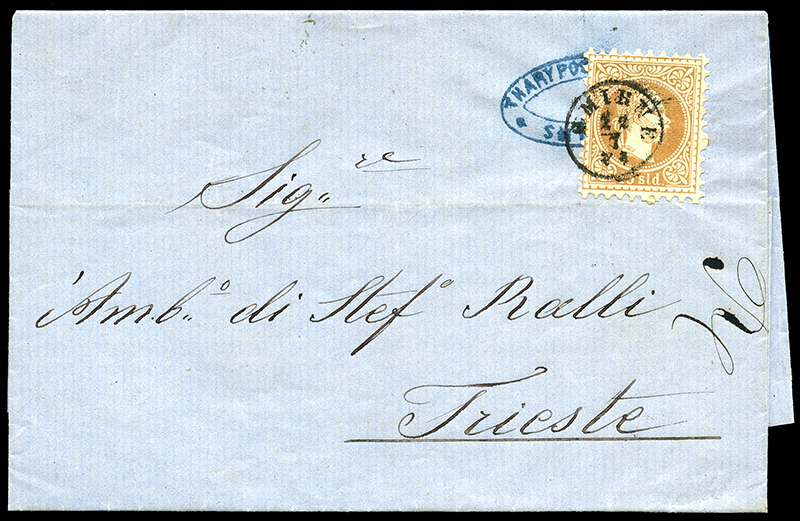 THARYPO
SMIRNE
sld.
Sig.re
Amb.o di Stef.o Ralli
Trieste